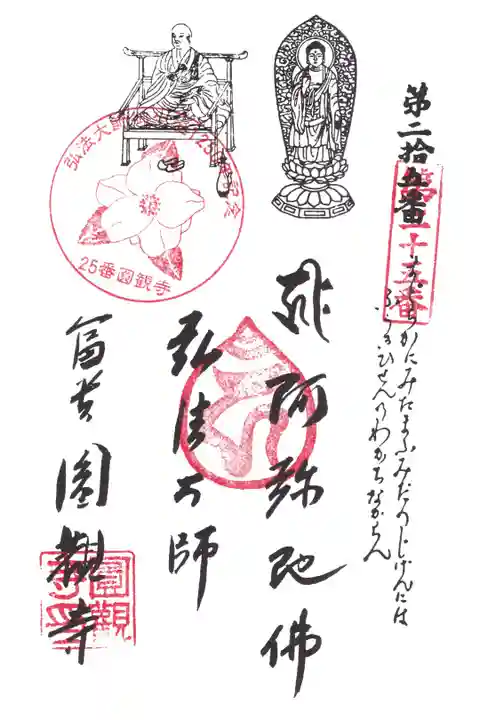 第二拾五番
第二十五番
みたまふみだのじげんには
ふうきひせんのわかちなからん
阿弥陀佛
弘法大師
富貴 圓観寺
弘法大師
25番圓観寺
圓觀寺印